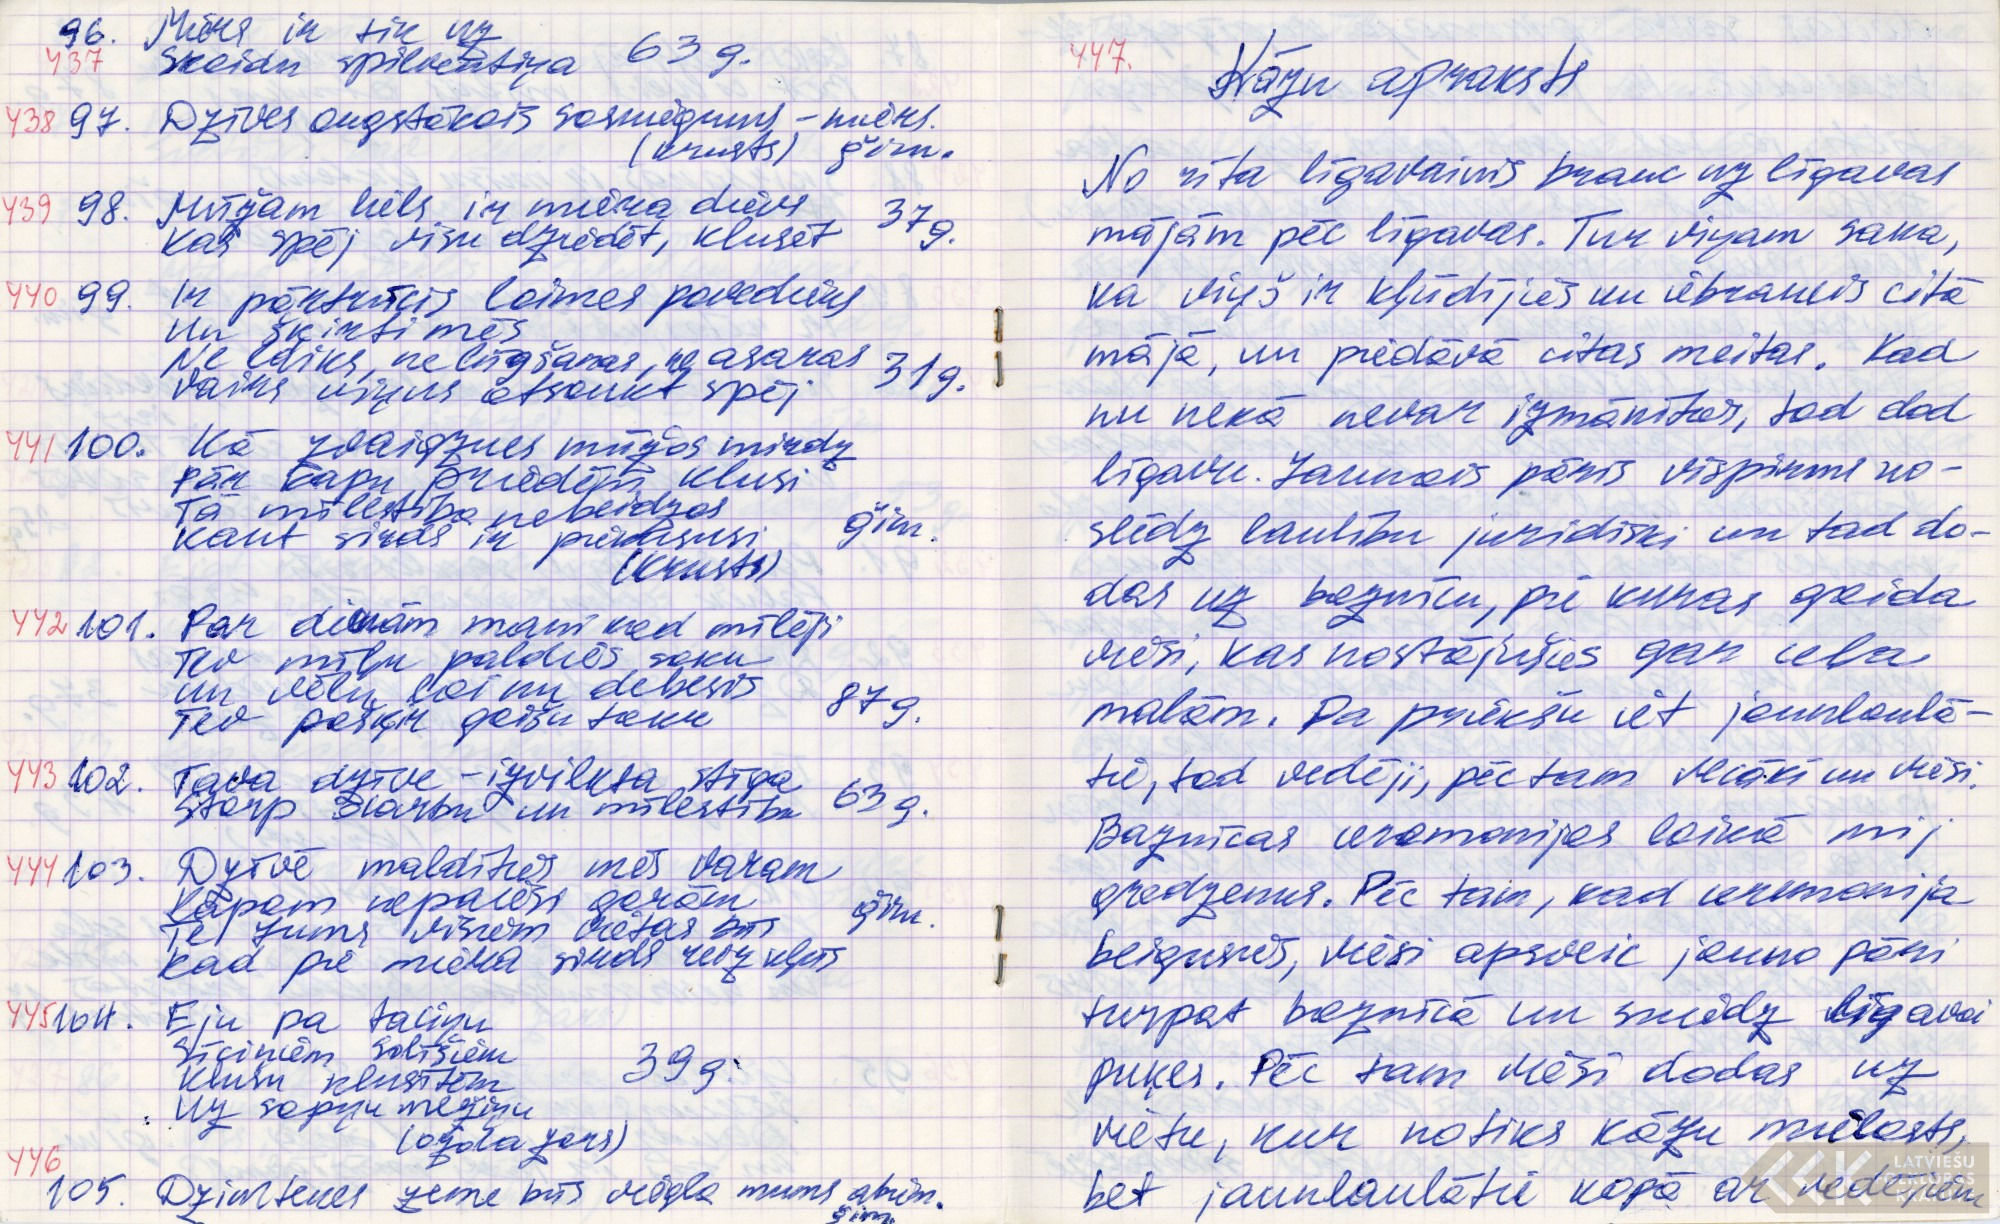 96. Miers ir tik uz
437 skaidu spilventiņa 63 g.
438 97. Dzīves augstākais sasniegums – miers.
(krusts) ģim.
439 98. Mūžam liels ir miera dievs 37 g.
Kas spēj visu dziedēt, klusēt
440 99. Ir pārtrūcis laimes pavediens
un šķirti mēs
Ne laiks, ne lūgšanas, ne asaras 31 g.
vairs viņus atsaukt spēj
441 100. Kā zvaigznes mūžos mirdz
Pār kapu priedēm klusi
Tā mīlestība nebeidzas ģim.
Kaut sirds ir pierimusi
(Krusts)
442 101. Par dienām mani kad mīlēji
Tev mīļu paldies saku
un vēlu lai nu debesis 87 g.
Tev pašķir gaišu taku
443 102. Tava dzīve – izvilkta stīga
Starp darbu un mīlestību 63 g.
444 103. Dzīvē maldīties mēs varam
Kapam nepaiesi garām ģim.
Te jums visiem vietas būs
Kad pie miera sirds reiz kļūs
445 104. Eju pa taciņu
Sīciņiem solīšiem
Klusu klusītēm 39 g.
Uz sapņu mežiņu
(ozola zars)
446
105. Dzimtenes zeme būs viegla mums abiem.
ģim.
447. Kāzu apraksts
No rīta līgavainis brauc uz līgavas
mājām pēc līgavas. Tur viņam saka,
ka viņš ir kļūdījies un iebraucis citā
mājā, un piedāvā citas meitas. Kad
nu nekā nevar izmānīties, tad dod
līgavu. Jaunais pāris vispirms no-
slēdz laulību juridiski un tad do-
das uz baznīcu, pie kuras gaida
viesi, kas nostājušies gar ceļa
malām. Pa priekšu iet jaunlaulā-
tie, tad vedēji, pēc tam vecāki un viesi.
Baznīcas ceremonijas laikā mij
gredzenus. Pēc tam, kad ceremonija
beigusies, viesi apsveic jauno pāri
turpat baznīcā un sniedz līgavai
puķes. Pēc tam viesi dodas uz
vietu, kur notiks kāzu mielasts,
bet jaunlaulātie kopā ar vedējiem
LATVIEŠU
FOLKLORAS
KRĀTUVE